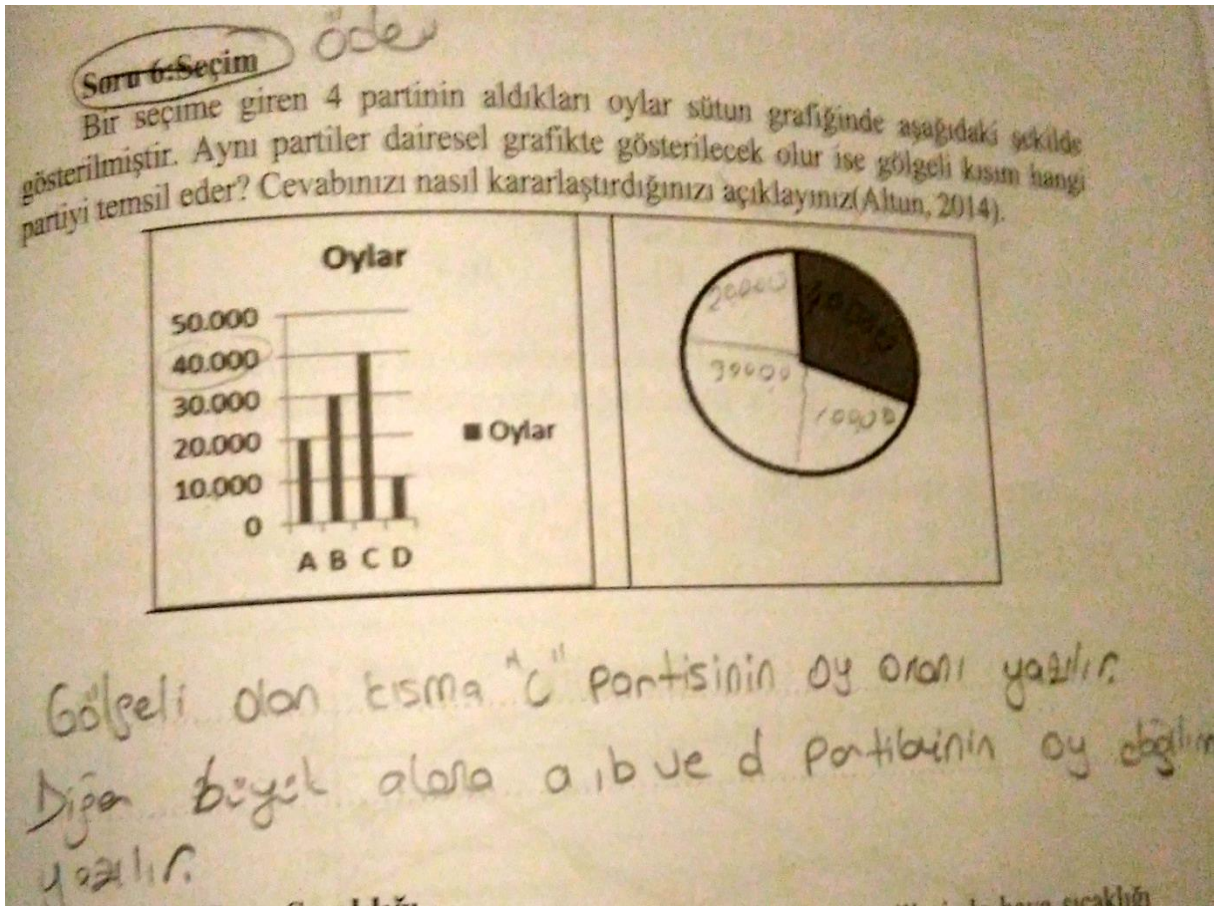 Soru 6:Seçim
Bir seçime giren 4 partinin aldıkları oylar sütun grafiğinde aşağıdaki şekilde
gösterilmiştir. Aynı partiler dairesel grafikte gösterilecek olur ise gölgeli kısım hangi
partiyi temsil eder? Cevabınızı nasıl kararlaştırdığınızı açıklayınız(Altun, 2014).
Oylar
50.000
40.000
30.000
20.000
10.000
0
A B C D
Oylar
20000
40000
30000
10000
Gölgeli olan kısma "C" partisinin oy oranı yazılır.
Diğer büyük alana a,b ve d partilerinin oy
yazılır.